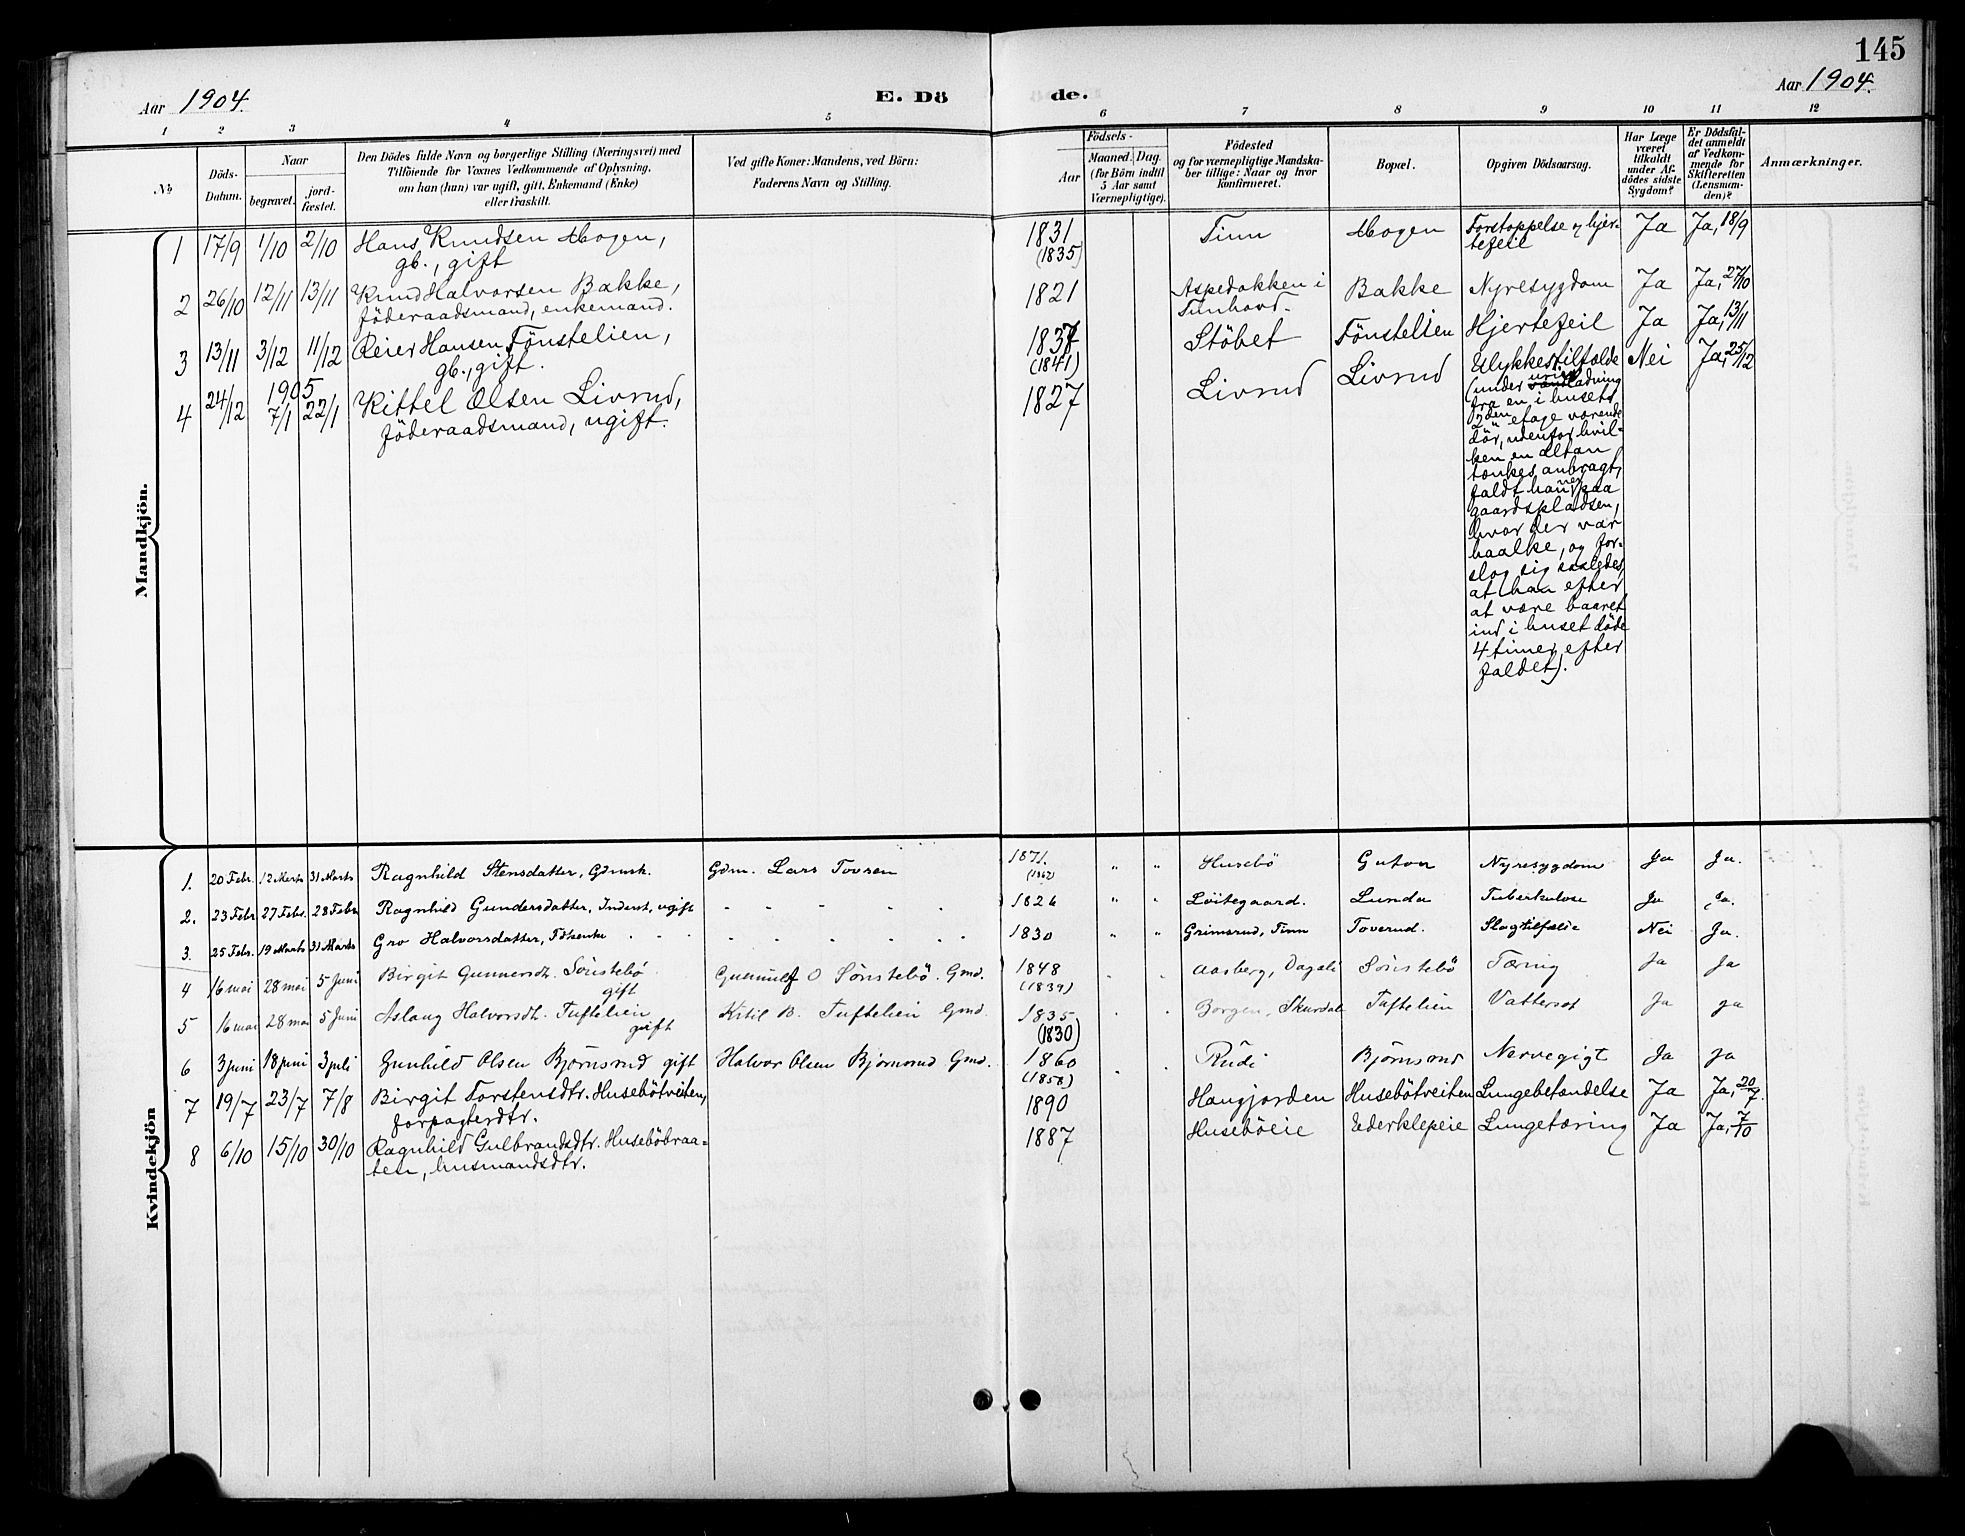 145
Aar 1904.
E. Dö
de.
Aar 1904.
1 2 3 4 5 6 7 8 9 10 11 12
No
Döds-
Datum.
Naar
begravet.
jord-
fæstet.
Den Dödes fulde Navn og borgerlige Stilling (Næringsvei) med
Tilföiende for Voxnes Vedkommende af Oplysning,
om han (hun) var ugift, gift, Enkemand (Enke)
eller fraskilt.
Ved gifte Koner: Mandens, ved Börn:
Faderens Navn og Stilling.
Födsels-
Aar
Maaned. Dag.
(for Börn indtil
5 Aar samt
Værnepligtige).
Födested
og for værnepligtige Mandska-
ber tillige: Naar og hvor
konfirmeret.
Bopæl.
Opgiven Dödsaarsag.
Har Læge
været
tilkaldt
under Af-
dödes sidste
Sygdom?
Er Dödsfal-
det anmeldt
af Vedkom-
mende for
Skifteretten
(Lensman-
den)?
Anmærkninger.
Mandkjön.
1 17/9 1/10 2/10 Hans Knudsen Mogen, 1831 Tinn Mogen Forstoppelse og hjer- Ja Ja, 18/9
gb., gift (1835) tefeil
2 26/10 12/11 13/11 Knud Halvorsen Bakke, 1821 Aspedokken i Bakke Nyresygdom Ja Ja, 27/10
föderaadsmand, enkemand. Tunhovd.
3 13/11 3/12 11/12 Reier Hansen Fönstelien, 1837 Stöbet Fönstelien Hjertefeil Ja Ja, 13/11
gb., gift. (1841)
1905
4 24/12 7/1 22/1 Kittel Olsen Livrud, 1827 Livrud Livrud Ulykkestilfælde Nei Ja, 25/12
föderaadsmand, ugift.
(under urinladning
fra en i husets
2den etage værende
dör, udenfor hvil-
ken en altan
tænkes anbragt,
faldt han ned paa
gaardspladsen,
hvor der var
haalke, og for-
slog sig saaledes,
at han efter
at være baaret
ind i huset döde
4 timer efter
faldet).
Kvindekjön
1. 20 Febr. 12 Marts 31 Marts Ragnhild Stensdatter, Gdmsk. Gdm. Lars Tovsen 1871. " " Husebö Guton Nyresygdom Ja Ja.
(1862)
2. 23 Febr 27 Febr. 28 Febr Ragnhild Gundersdatter, Inderst, ugift - - - - - 1826 " " Löitegaard. Lunda Tuberkulose Ja Ja.
3. 25 Febr. 19 Marts 31 Marts Gro Halvorsdatter, Fdkenke - - - - - - 1830 " " Grimsrud, Tinn Toverud. Slagtilfælde Nei Ja.
4 16 mai 28 mai 5 Juni Birgit Gunnersdt. Sönstebö Gunnulf O Sönstebö. Gmd. 1848 Aasberg, Dagali Sönstebö Tæring Ja Ja
gift (1839)
5 16 mai 28 mai 5 Juni Aslaug Halvorsdt. Tuftelien Kitil B. Tuftelien Gmd. 1835 Borgen, Skurdal Tuftelien Vattersot Ja ja
gift (1830)
6 3 juni 18 juni 3 juli Gunhild Olsen Björnsrud gift Halvor Olsen Björnsrud Gmd. 1860 Rudi Björnsrud Nervegigt Ja ja
(1858)
7 19/7 23/7 7/8 Birgit Torstensdtr. Husebötveiten, 1890 Haugjorden Husebötveiten Lungebetændelse Ja Ja, 20/7.
forpagterdtr.
8 6/10 15/10 30/10 Ragnhild Gulbrandsdtr. Huseböbraa- 1887 Huseböeie Ederklepeie Lungetæring Ja Ja, 7/10
ten, husmandsdtr.